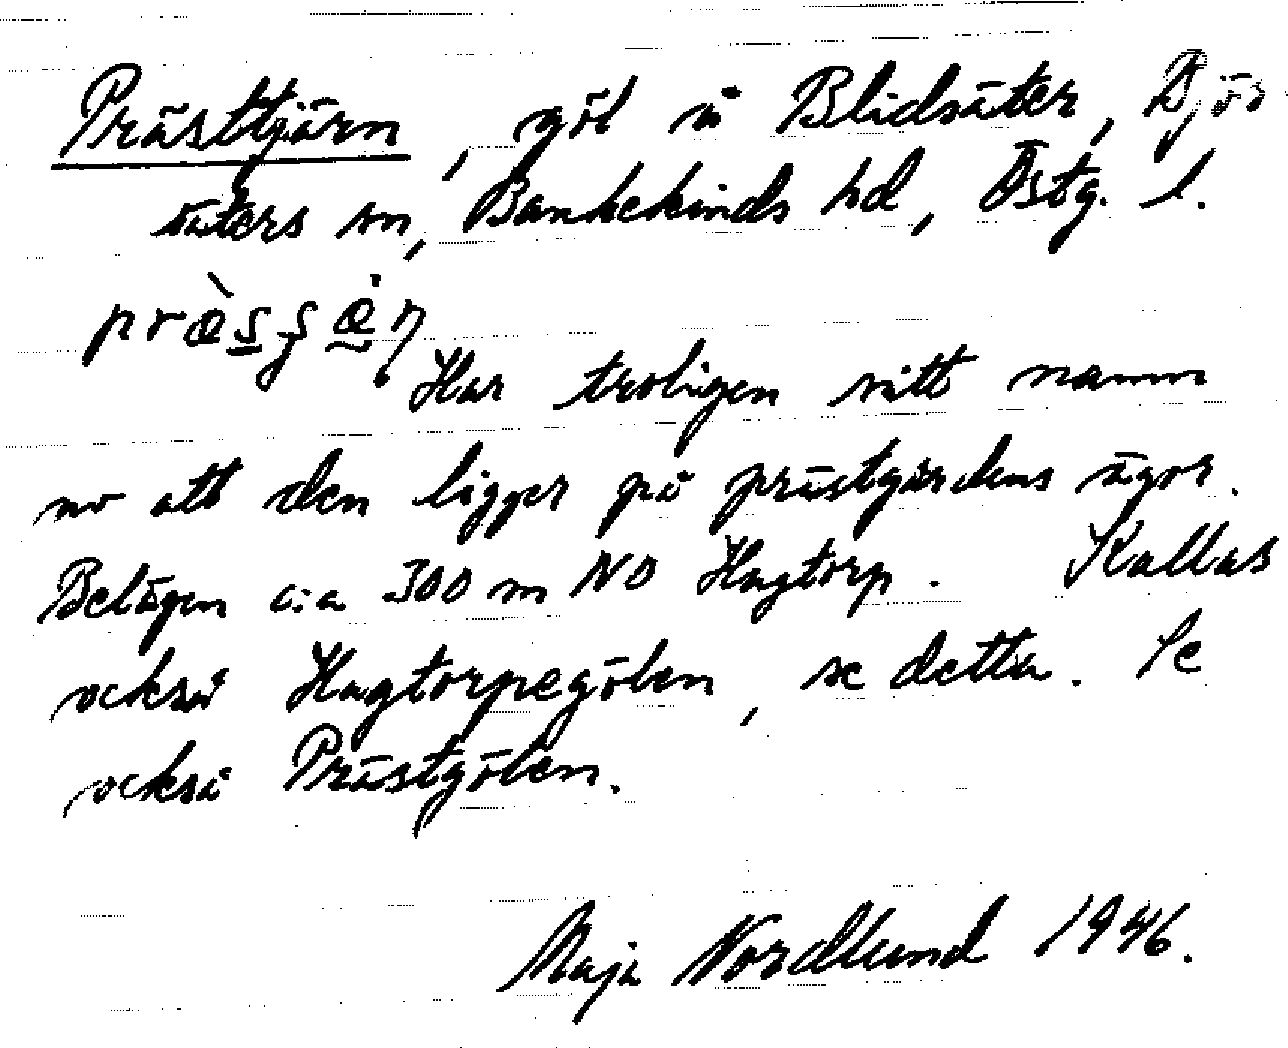 Prästtjärn, göl å Blidsäter, Björ
säters sn, Bankekinds hd, Östg. l.
Har troligen sitt namn
av att den ligger på prästgårdens ägor.
Belägen c:a 300 m NO Hagtorp. Kallas
också Hagtorpegölen, se detta. Se
också Prästgölen.
Maja Nordlund 1946.